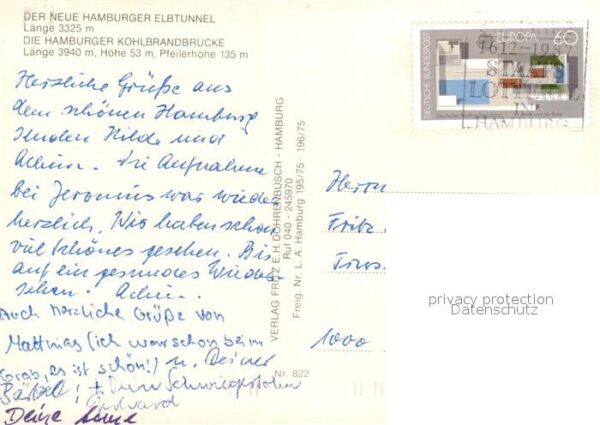 DER NEUE HAMBURGER ELBTUNNEL
Länge 3325 m
DIE HAMBURGER KÖHLBRANDBRÜCKE
Länge 3940 m, Höhe 53 m, Pfeilerhöhe 135 m
Herzliche Grüße aus
dem schönen Hamburg
senden Hilde und
Achim. Die Aufnahme
bei Jeromins war wieder
herzlich. Wir haben schon
viel Schönes gesehen. Bis
auf ein gesundes Wieder-
sehen. Achim.
Auch herzliche Grüße von
Matthias (ich war schon beim
Grab, es ist schön!) u. Deiner
Bärbel! + Dein Schwiegersohn
Gerhard
Deine
VERLAG FRITZ E.H. DOHRENBUSCH - HAMBURG
Ruf 040 - 245970
Freig. Nr. L. A. Hamburg 195/75 - 196/75
Nr. 822
DEUTSCHE BUNDESPOST
EUROPA 60
STAATS
LOTTERIE
IN
HAMBURG
Herrn
Fritz
1000
privacy protection
Datenschutz